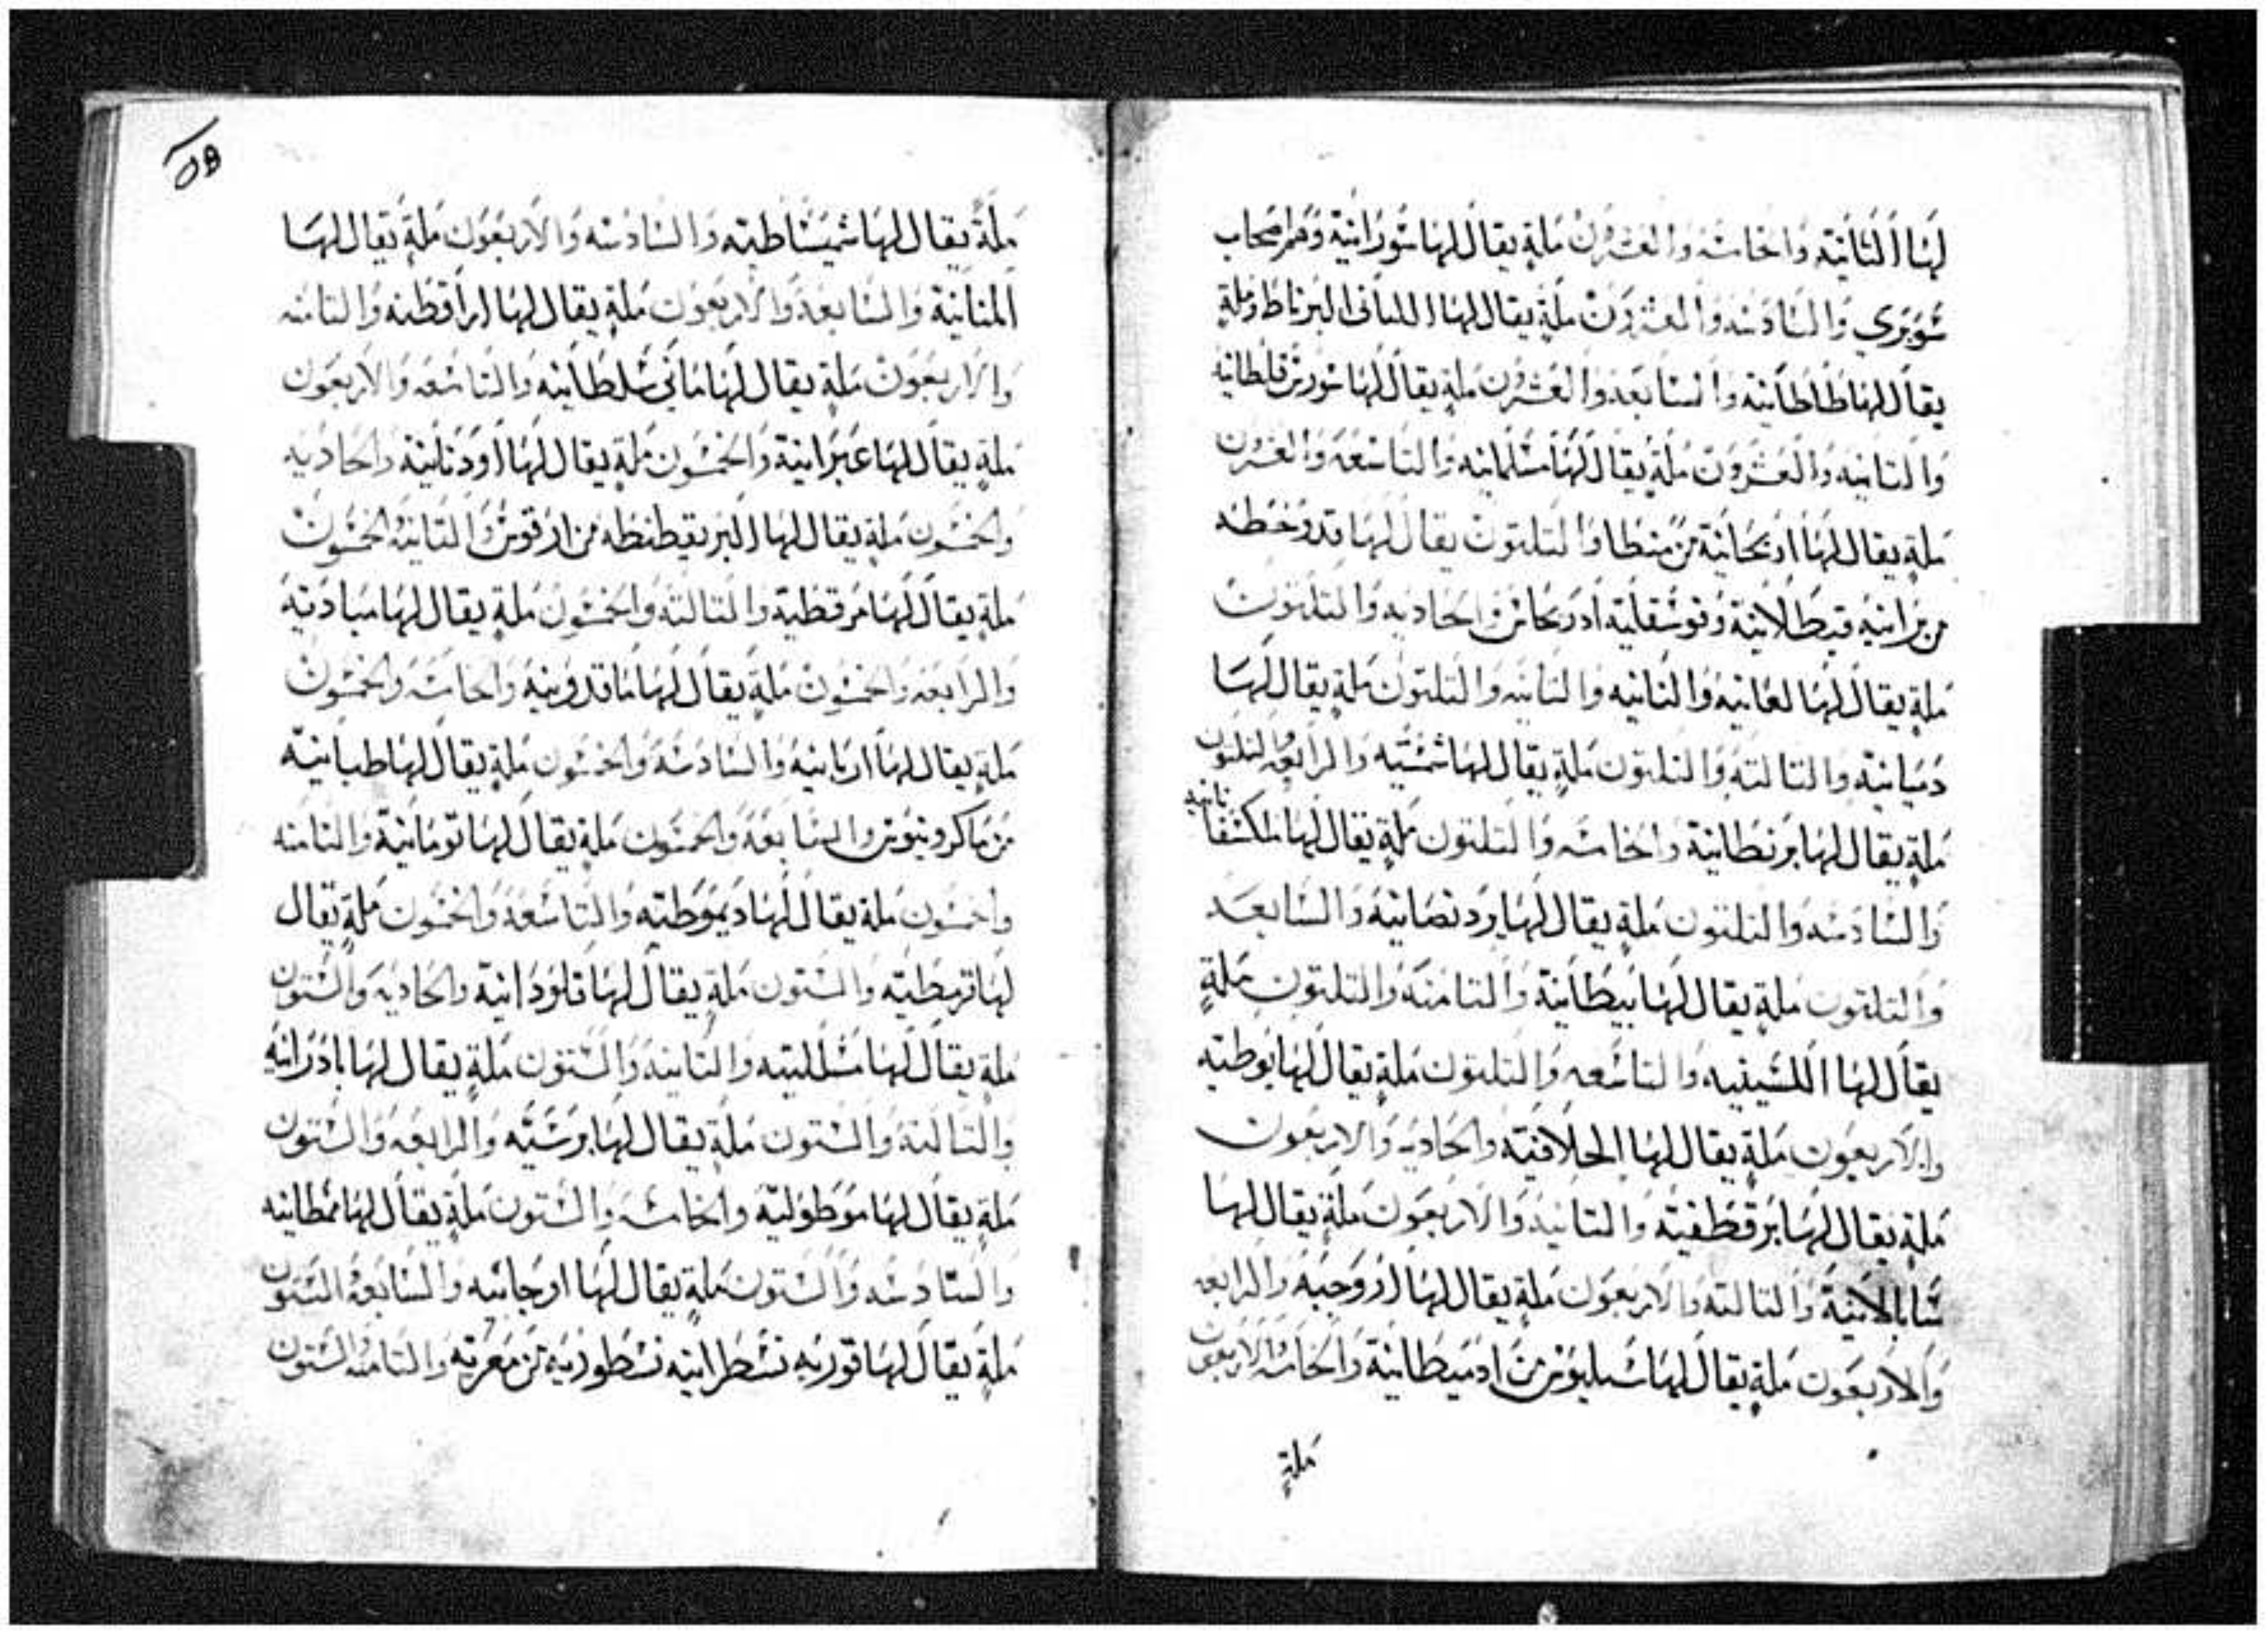 لها الثانية والخامسة والعشرون ملة يقال لها سورانية وهم اصحاب
سوبري والسادسة والعشرون ملة يقال لها البرناط وملة
يقال لها طاطانية والسابعة والعشرون ملة يقال لها
والثانيه والعشرون ملة يقال لها مسلمانيه والتاسعة والعشرون
ملة يقال لها اريحانية من منطا والثلثون يقال لها قدروخطه
من برانيه قيطالانية وقوشقلية ادريحاس والحاديه والثلثون
ملة يقال لها لعانيه والثانيه والثانيه والثلثون ملة يقال لها
دميانية والثالثه والثلثون ملة يقال لها شمشيه والرابعه والثلثون
ملة يقال لها برنطانية والخامسه والثلثون ملة يقال لها
والسادسه والثلثون ملة يقال لها بردنصانية والسابعه
والثلثون ملة يقال لها بيطانية والثامنة والثلثون ملة
يقال لها اللسينيه والتاسعه والثلثون ملة يقال لها بوطيه
والاربعون ملة يقال لها الحلافية والحاديه والاربعون
ملة يقال لها برقطفية والثانية والاربعون ملة يقال لها
سابالانية والثالثه والاربعون ملة يقال لها ازروجيه والرابعه
والاربعون ملة يقال لها سبليوس من ادميطانية والخامسه والاربعون
ملة
ملة يقال لها شميشاطيه والسادسه والاربعون ملة يقال لها
المنانية والسابعة والاربعون ملة يقال لها اراقطيه والثامنه
والاربعون ملة يقال لها ماني سلطانيه والتاسعه والاربعون
ملة يقال لها عبرانية والخمسون ملة يقال لها اودنانية والحاديه
والخمسون ملة يقال لها البريقيطنطه من ارقوس والثانيه والخمسون
ملة يقال لها مرقطية والثالثه والخمسون ملة يقال لها ميادنه
والرابعه والخمسون ملة يقال لها ماقدرونيه والخامسه والخمسون
ملة يقال لها اريانيه والسادسة والخمسون ملة يقال لها طبيانيه
من ماكردينوس والسابعة والخمسون ملة يقال لها تومانية والثامنه
والخمسون ملة يقال لها ديموطيه والتاسعة والخمسون ملة يقال
لها قريطيه والستون ملة يقال لها قلودانية والحاديه والستون
ملة يقال لها مسلليه والثانيه والستون ملة يقال لها بادرانيه
والثالثة والستون ملة يقال لها برسيه والرابعه والستون
ملة يقال لها موطوليه والخامسه والستون ملة يقال لها مطانيه
والسادسه والستون ملة يقال لها اورجانيه والسابعة الستون
ملة يقال لها قوريه نسطرانيه نسطوريه من معرته والثامنه والستون